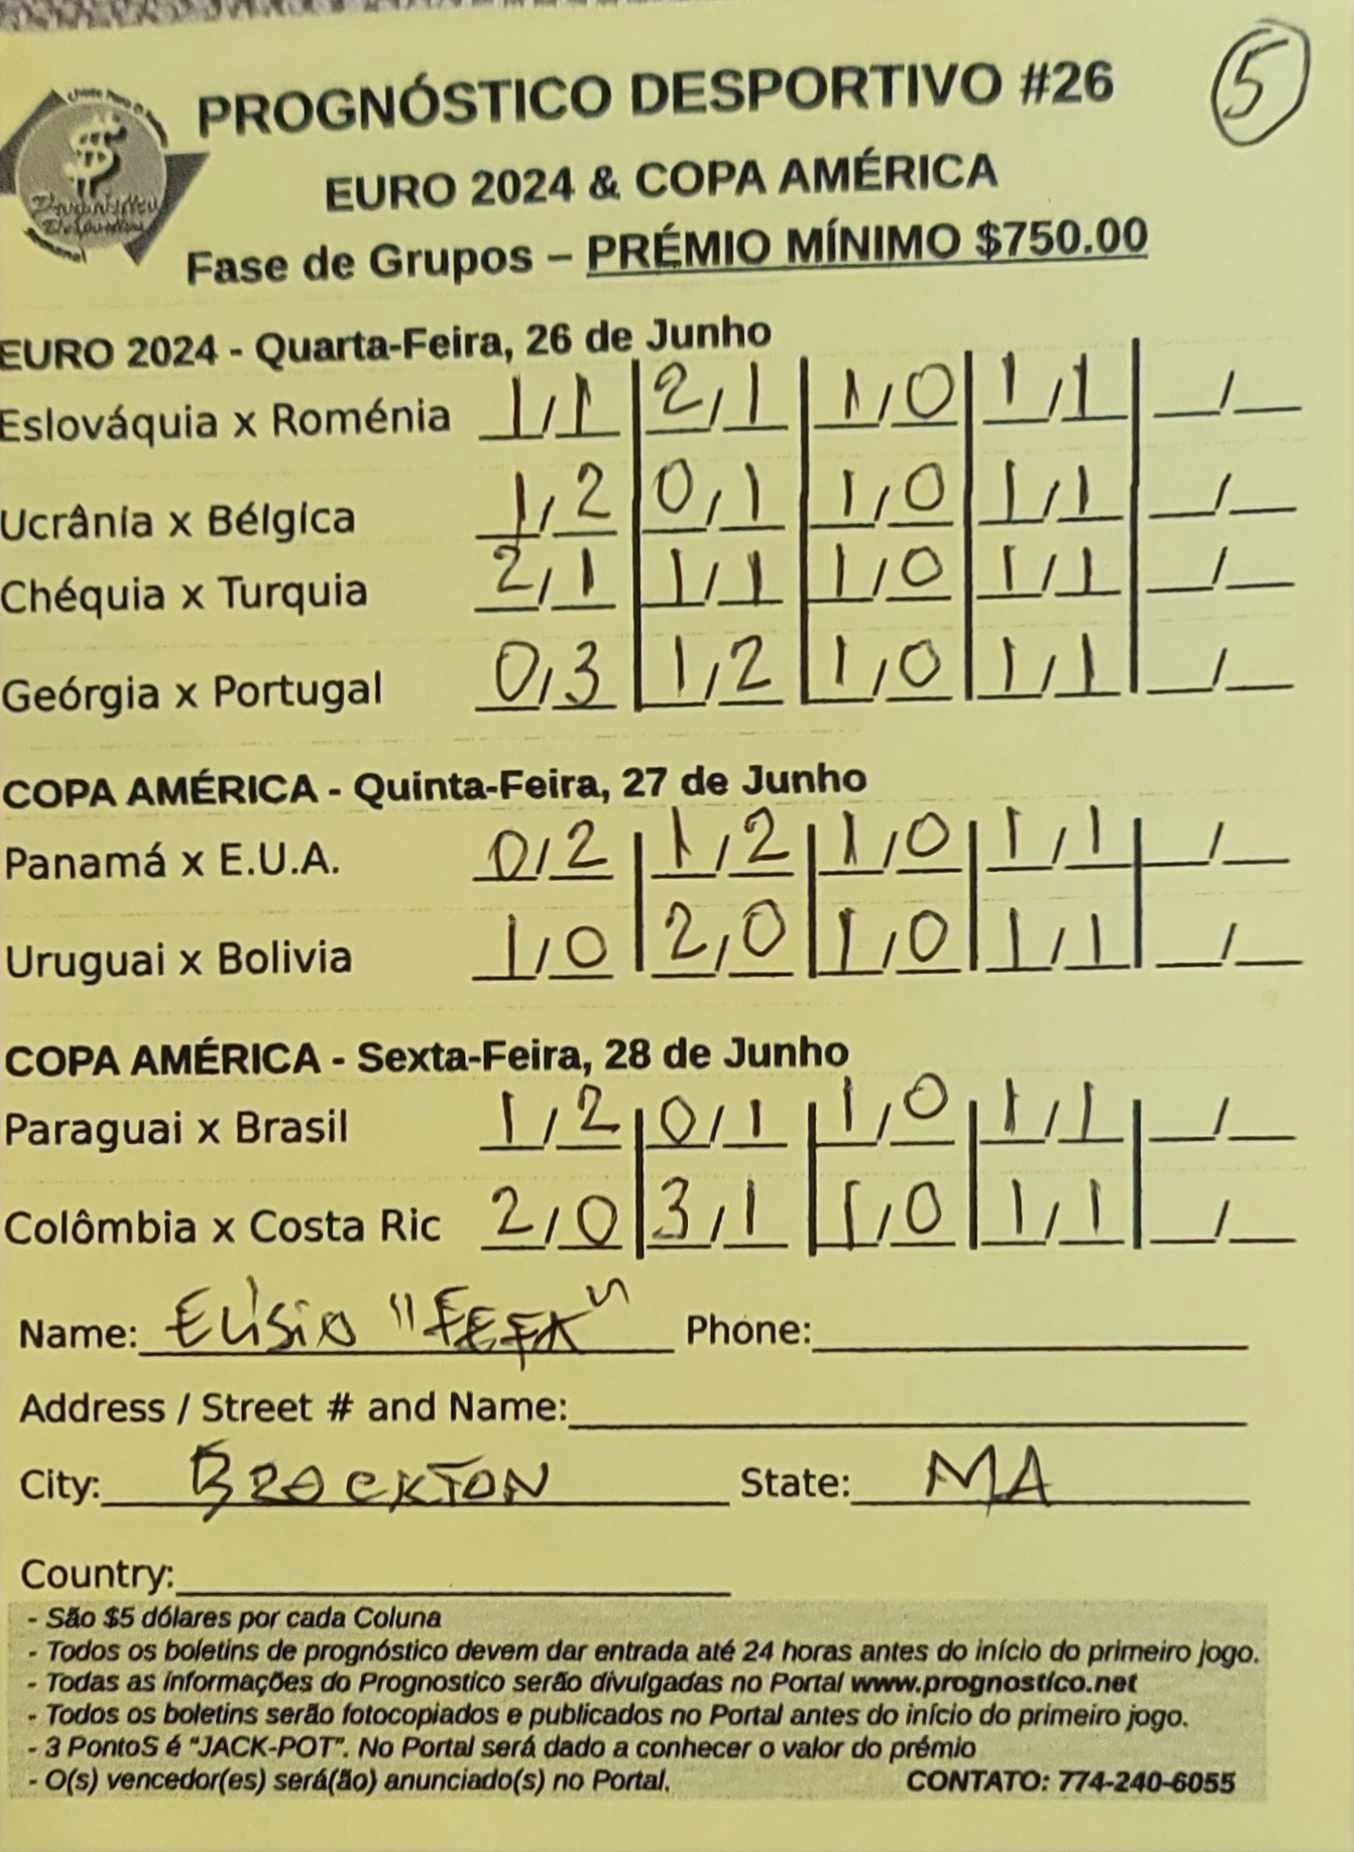 PROGNÓSTICO DESPORTIVO #26
5
EURO 2024 & COPA AMÉRICA
Fase de Grupos – PRÉMIO MÍNIMO $750.00
EURO 2024 - Quarta-Feira, 26 de Junho
Eslováquia x Roménia 1/1 2/1 1/0 1/1 __/__
Ucrânia x Bélgica 1/2 0/1 1/0 1/1 __/__
Chéquia x Turquia 2/1 1/1 1/0 1/1 __/__
Geórgia x Portugal 0/3 1/2 1/0 1/1 __/__
COPA AMÉRICA - Quinta-Feira, 27 de Junho
Panamá x E.U.A. 0/2 1/2 1/0 1/1 __/__
Uruguai x Bolivia 1/0 2/0 1/0 1/1 __/__
COPA AMÉRICA - Sexta-Feira, 28 de Junho
Paraguai x Brasil 1/2 0/1 1/0 1/1 __/__
Colômbia x Costa Ric 2/0 3/1 1/0 1/1 __/__
Name: ELÍSIO "FEFA" Phone:
Address / Street # and Name:
City: BROCKTON State: MA
Country:
- São $5 dólares por cada Coluna
- Todos os boletins de prognóstico devem dar entrada até 24 horas antes do início do primeiro jogo.
- Todas as informações do Prognostico serão divulgadas no Portal www.prognostico.net
- Todos os boletins serão fotocopiados e publicados no Portal antes do início do primeiro jogo.
- 3 PontoS é "JACK-POT". No Portal será dado a conhecer o valor do prémio
- O(s) vencedor(es) será(ão) anunciado(s) no Portal. CONTATO: 774-240-6055